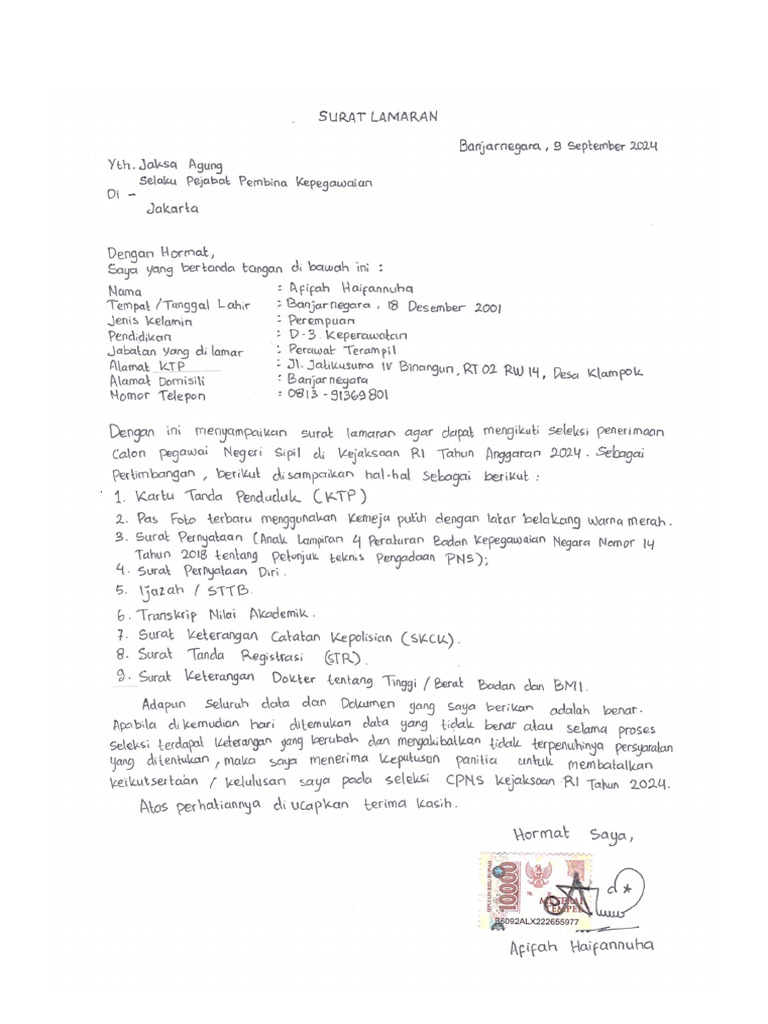 SURAT LAMARAN
Banjarnegara, 9 September 2024
Yth. Jaksa Agung
Selaku Pejabat Pembina Kepegawaian
Di -
Jakarta
Dengan Hormat,
Saya yang bertanda tangan di bawah ini :
Nama : Afifah Haifannuha
Tempat/Tanggal Lahir : Banjarnegara, 18 Desember 2001
Jenis Kelamin : Perempuan
Pendidikan : D-3 Keperawatan
Jabatan yang di lamar : Perawat Terampil
Alamat KTP : Jl. Jalikusuma IV Binangun, RT 02 RW 14, Desa Klampok
Alamat Domisili : Banjarnegara
Nomor Telepon : 0813-91369801
Dengan ini menyampaikan surat lamaran agar dapat mengikuti seleksi penerimaan
Calon pegawai Negeri Sipil di Kejaksaan RI Tahun Anggaran 2024. Sebagai
Pertimbangan, berikut disampaikan hal-hal sebagai berikut :
1. Kartu Tanda Penduduk (KTP)
2. Pas Foto terbaru menggunakan Kemeja putih dengan latar belakang warna merah.
3. Surat Pernyataan (Anak Lampiran 4 Peraturan Badan Kepegawaian Negara Nomor 14
Tahun 2018 tentang Petunjuk teknis Pengadaan PNS);
4. Surat Pernyataan Diri.
5. Ijazah / STTB.
6. Transkrip Nilai Akademik.
7. Surat Keterangan Catatan Kepolisian (SKCK).
8. Surat Tanda Registrasi (STR).
9. Surat Keterangan Dokter tentang Tinggi/Berat Badan dan BMI.
Adapun seluruh data dan Dokumen yang saya berikan adalah benar.
Apabila dikemudian hari ditemukan data yang tidak benar atau selama proses
seleksi terdapat keterangan yang berubah dan mengakibatkan tidak terpenuhinya persyaratan
yang ditentukan, maka saya menerima keputusan panitia untuk membatalkan
keikutsertaan / kelulusan saya pada seleksi CPNS Kejaksaan RI Tahun 2024.
Atas perhatiannya diucapkan terima kasih.
Hormat Saya,
10000
METERAI
TEMPEL
B6092ALX222655977
Afifah Haifannuha